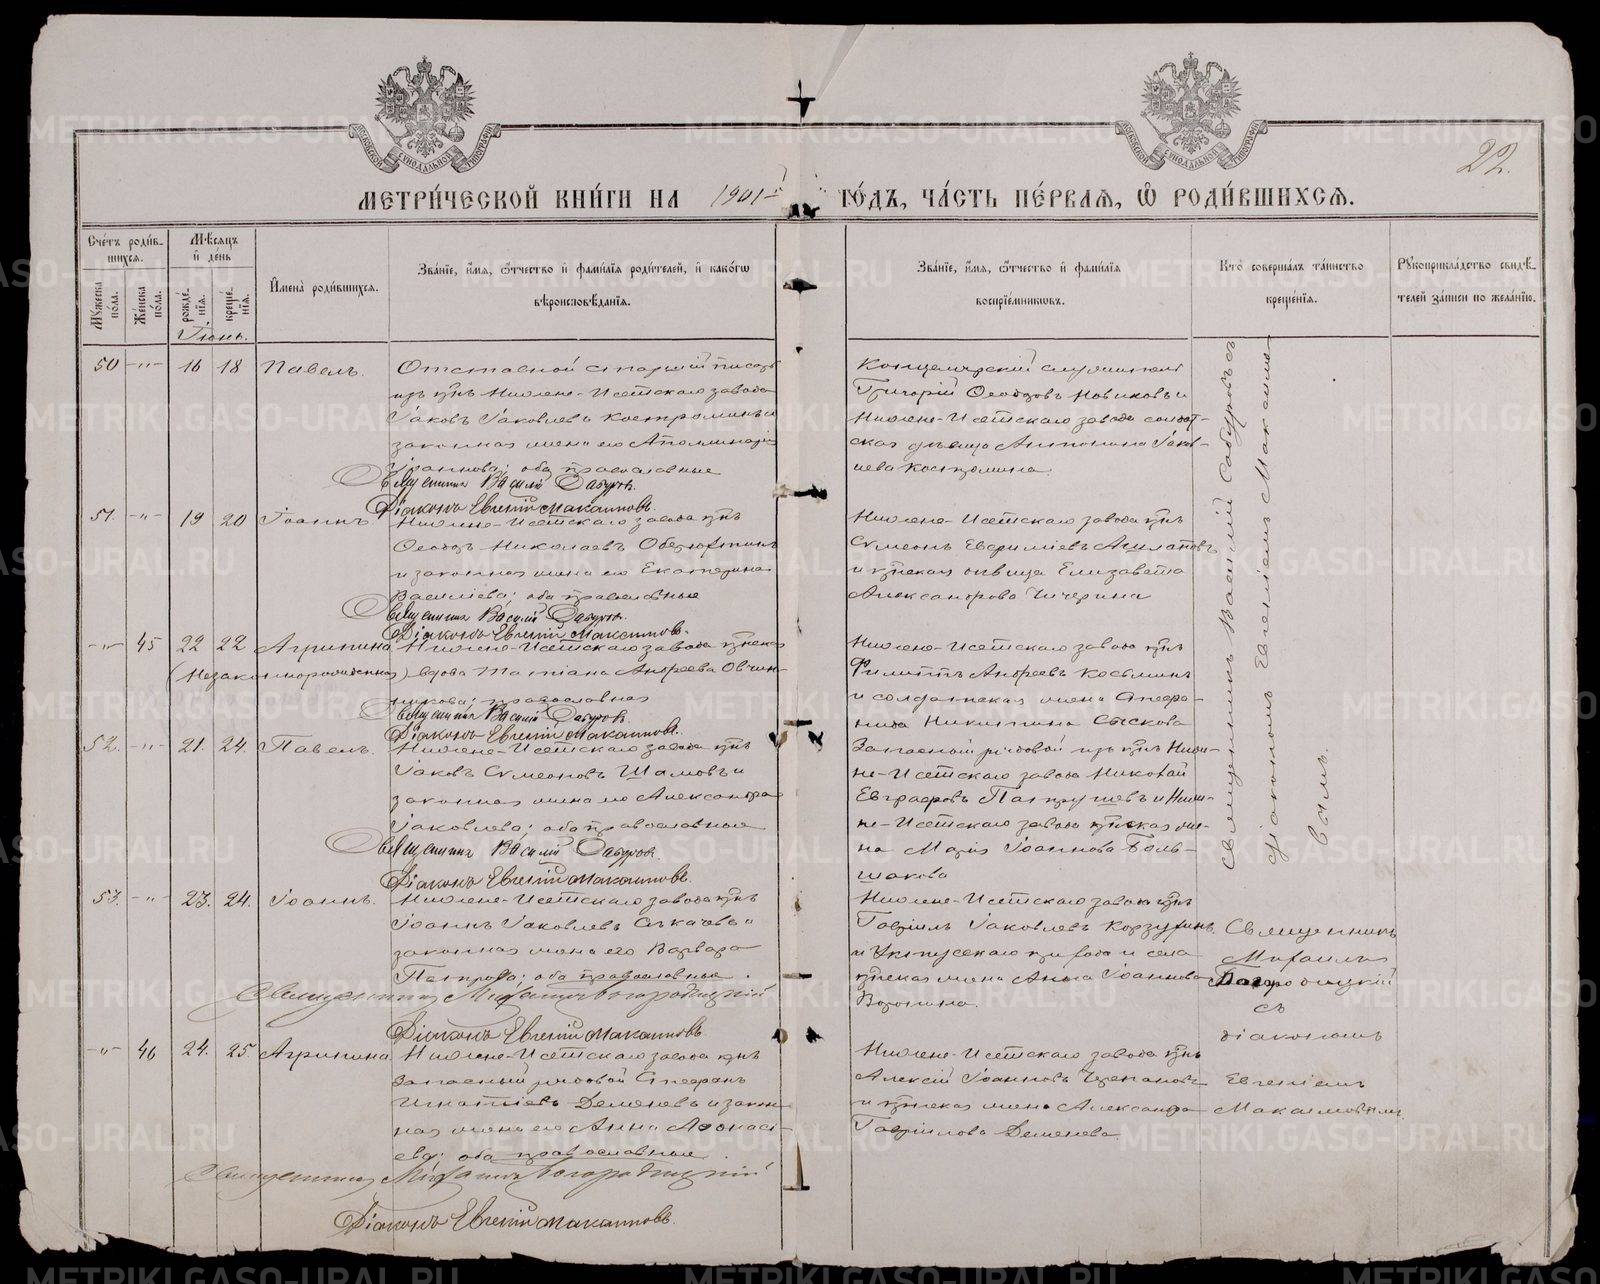 МОСКОВСКОЙ СѴНОДАЛЬНОЙ ТИПОГРАФІИ
МОСКОВСКОЙ СѴНОДАЛЬНОЙ ТИПОГРАФІИ
22.
МЕТРИ́ЧЕСКОЙ КНИ́ГИ НА 1901 й ГО́ДЪ, ЧА́СТЬ ПЕ́РВАЯ, Ѽ РОДИ́ВШИХСЯ.
Сче́тъ роди́вшихся.
Му́жеска по́ла.
Же́нска по́ла.
Мѣ́сяцъ и҆ де́нь
рожде́нїѧ.
креще́нїѧ.
И҆мена̀ роди́вшихся.
Зва́нїе, и҆́мѧ, ѻ҆́тчество и҆ фами́лїѧ роди́телей, и҆ како́гѡ
вѣроисповѣ́данїѧ.
Зва́нїе, и҆́мѧ, ѻ҆́тчество и҆ фами́лїѧ
воспрїе́мникѡвъ.
Кто̀ соверша́лъ та́инство
креще́нїѧ.
Рꙋкоприкла́дство свидѣ́
телей за́писи по жела́нїю.
Іюнь.
50 -"- 16 18 Павелъ.
Отставной старшій писарь
изъ кр. Нижне-Исетскаго завода
Іаковъ Іаковлевъ Костроминъ и
законная жена его Аполлинарія
Іоаннова; оба православные
Священникъ Василій Сабуровъ.
Діаконъ Евгеній Максимовъ.
Канцелярскій служитель
Григорій Ѳеодоровъ Новиковъ и
Нижне-Исетскаго завода солдат-
ская дѣвица Антонина Іаков-
лева Костромина.
51. -"- 19 20 Іоаннъ.
Нижне-Исетскаго завода кр.
Ѳеодоръ Николаевъ
и законная жена его Екатерина
Василіева; оба православные
Священникъ Василій Сабуровъ.
Діаконъ Евгеній Максимовъ.
Нижне-Исетскаго завода кр.
Сѵмеонъ
и дѣвица Елизавета
Александрова Чичерина
-"- 45 22 22 Агриппина
(Незаконнорожденная)
Нижне-Исетскаго завода
вдова Татіана Андреева Овчин-
никова; православная
Священникъ Василій Сабуровъ.
Діаконъ Евгеній Максимовъ.
Нижне-Исетскаго завода кр.
Филиппъ Андреевъ Косьминъ
и солдатская жена Стефа-
нида Никитина Сыскова
52. -"- 21. 24. Павелъ.
Нижне-Исетскаго завода кр.
Іаковъ Сѵмеоновъ Шамовъ и
законная жена его Александра
Іаковлева; оба православные
Священникъ Василій Сабуровъ.
Діаконъ Евгеній Максимовъ.
Запасный рядовой изъ кр. Ниж-
не-Исетскаго завода Николай
Евграфовъ Патрушевъ и Ниж-
не-Исетскаго завода же-
на Марія Іоаннова Боль-
шакова
Священникъ Василій Сабуровъ съ
діакономъ Евгеніемъ Максимо-
вымъ.
53. -"- 23. 24. Іоаннъ.
Нижне-Исетскаго завода кр.
Іоаннъ Іаковлевъ и
законная жена его Варвара
Петрова; оба православные.
Священникъ Михаилъ Богородицкій
Діаконъ Евгеній Максимовъ
Нижне-Исетскаго завода кр.
Гавріилъ Іаковлевъ Корзухинъ
и Уктусскаго прихода и села
жена Анна Іоаннова
Воронина.
Священникъ
Михаилъ
Богородицкій
съ
діакономъ
Евгеніемъ
Максимовымъ.
-"- 46 24. 25. Агриппина
Нижне-Исетскаго завода кр.
Запасный рядовой Стефанъ
Игнатіевъ Деменевъ и закон-
ная жена его Анна Аѳонасі-
ева; оба православные.
Священникъ Михаилъ Богородицкій
Діаконъ Евгеній Максимовъ.
Нижне-Исетскаго завода кр.
Алексій Іоанновъ Черепановъ
и жена Александра
Гавріилова Деменева.
METRIKI.GASO-URAL.RU